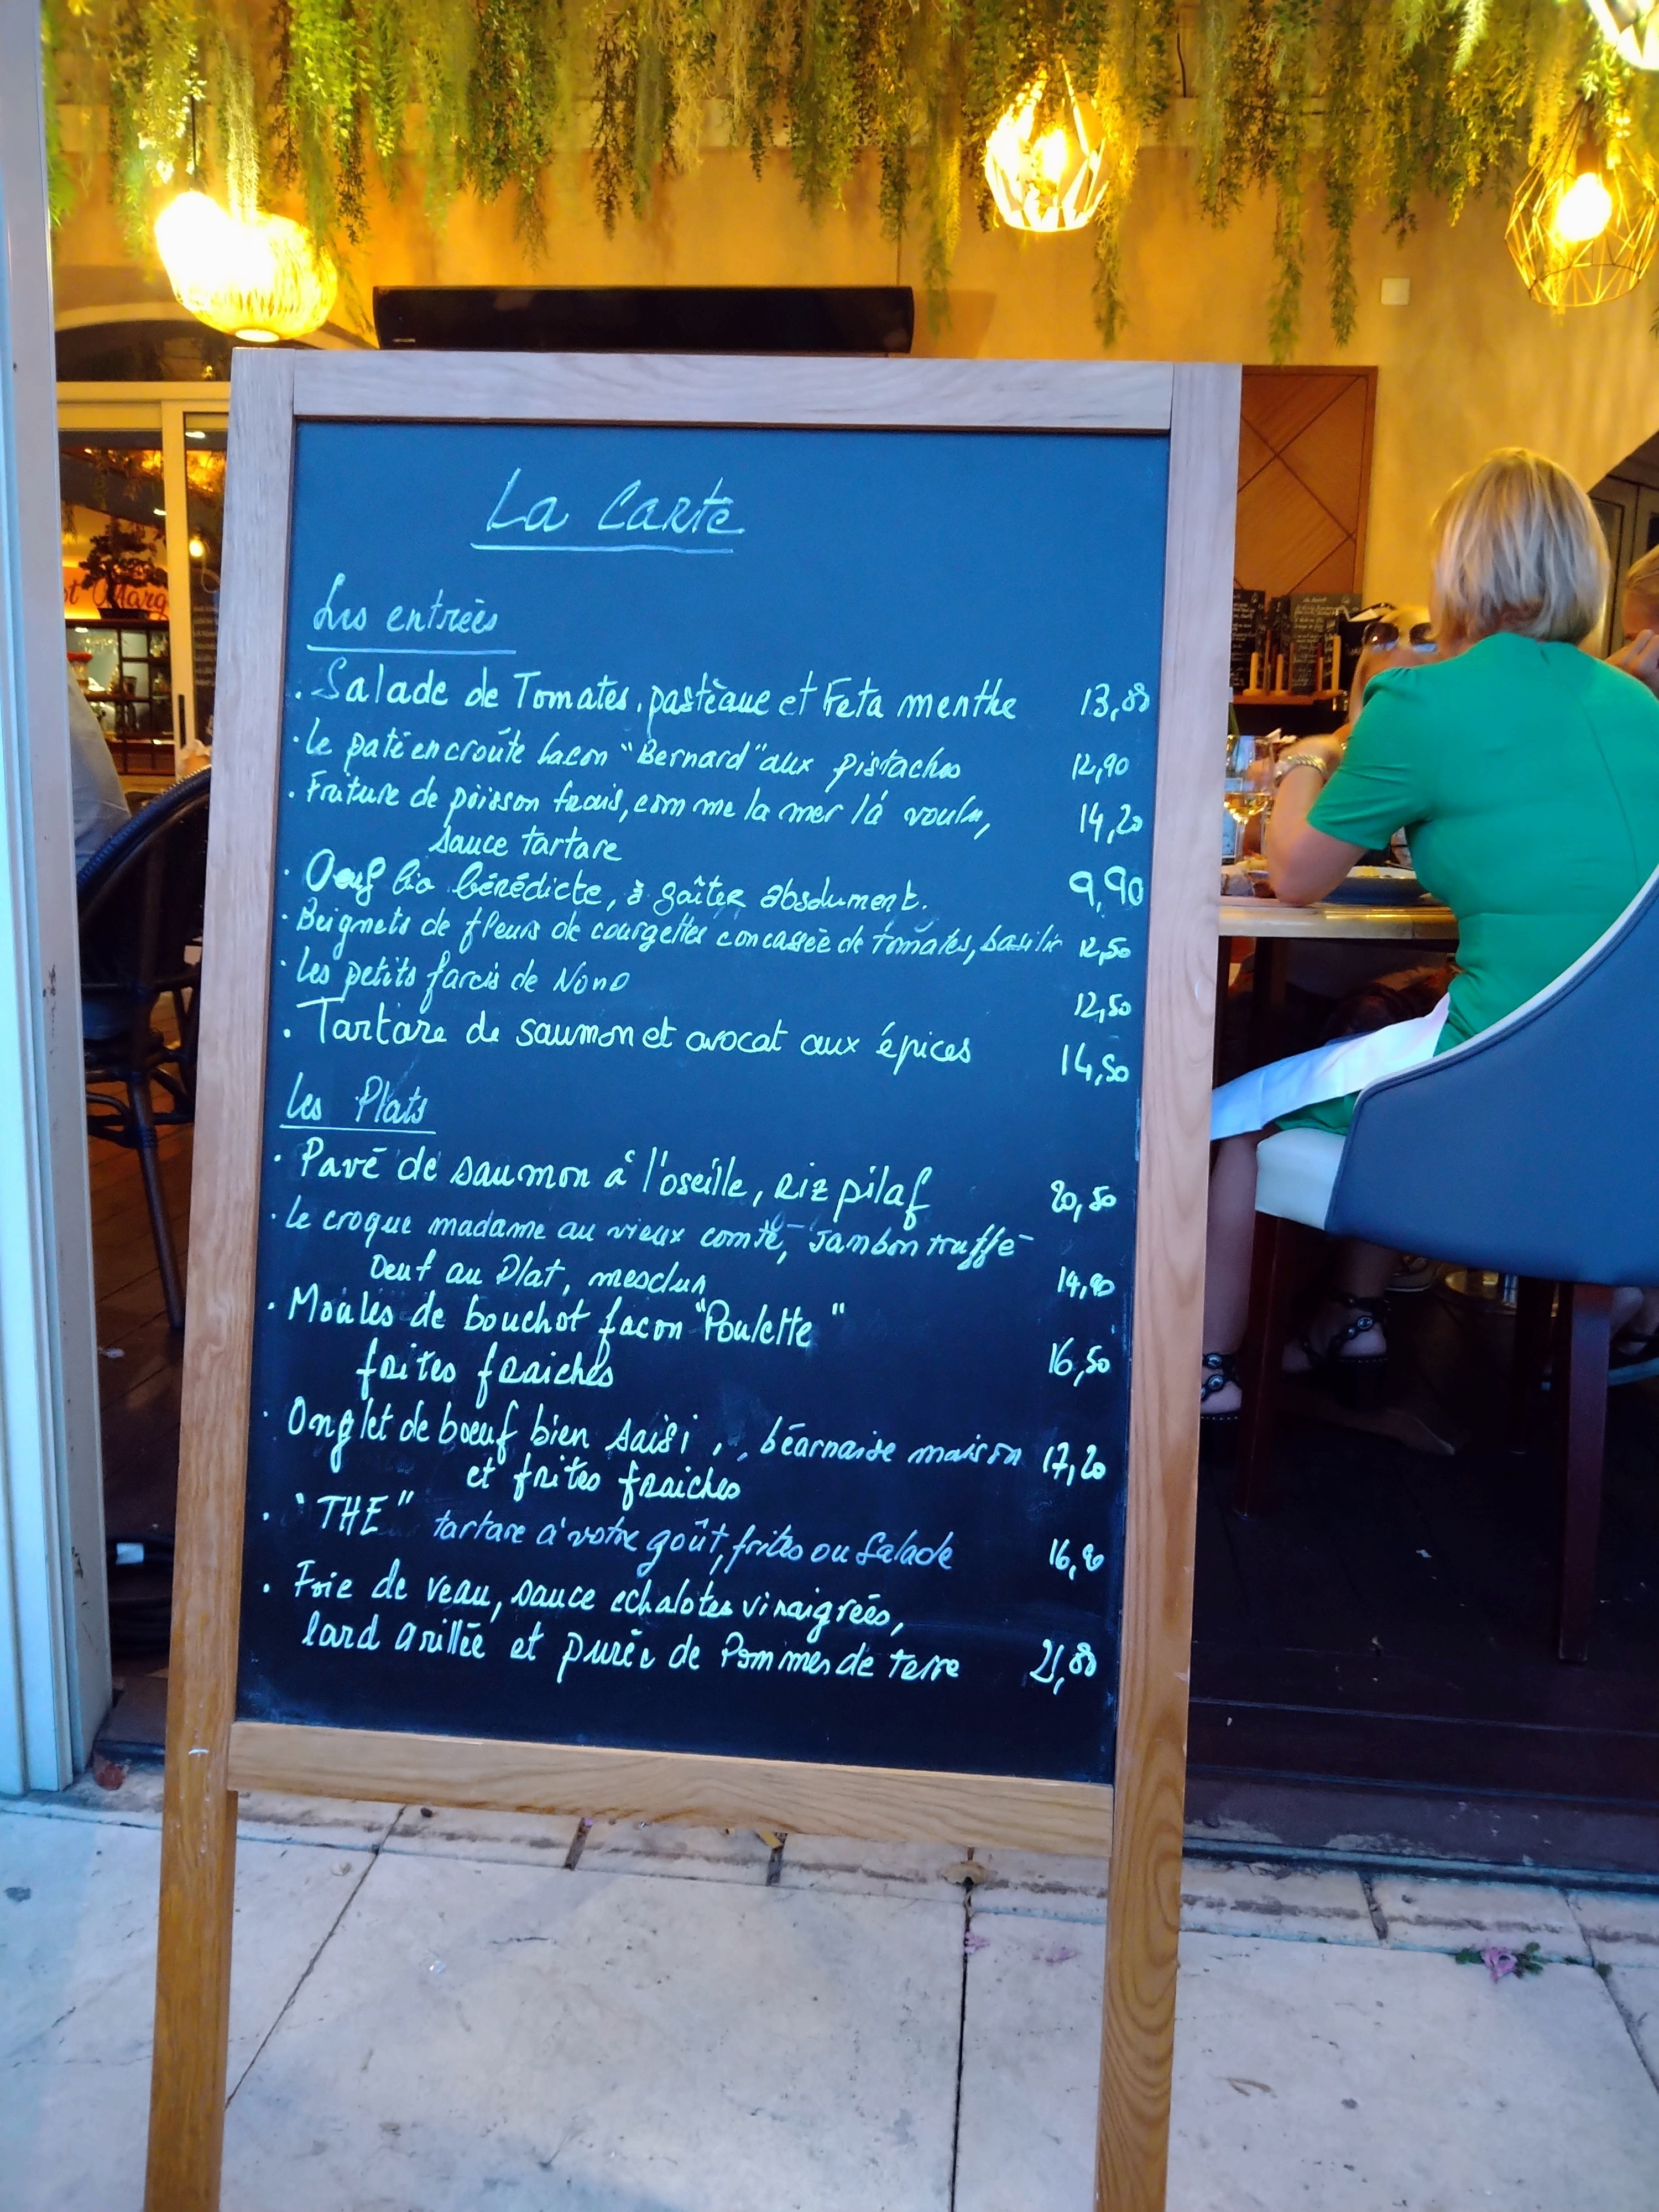 La Carte
Les entrées
. Salade de Tomates, pastèque et Feta menthe 13,80
. Le paté en croûte façon "Bernard" aux pistaches 12,90
. Friture de poisson frais, comme la mer l'a voulu, 14,20
sauce tartare
. Oeuf bio bénédicte, à goûter absolument. 9,90
. Beignets de fleurs de courgettes concassée de tomates, basilic 12,50
. Les petits farcis de Nono 12,50
. Tartare de saumon et avocat aux épices 14,50
Les Plats
. Pavé de saumon à l'oseille, riz pilaf 20,50
. Le croque madame au vieux comté, Jambon truffe
Oeuf au Plat, mesclun 14,90
. Moules de bouchot façon "Poulette" 16,50
frites fraiches
. Onglet de boeuf bien saisi, béarnaise maison 17,20
et frites fraiches
. "THE" tartare à votre goût, frites ou Salade
. Foie de veau, sauce echalotes vinaigrées,
lard grillée et purée de Pommes de terre 21,80